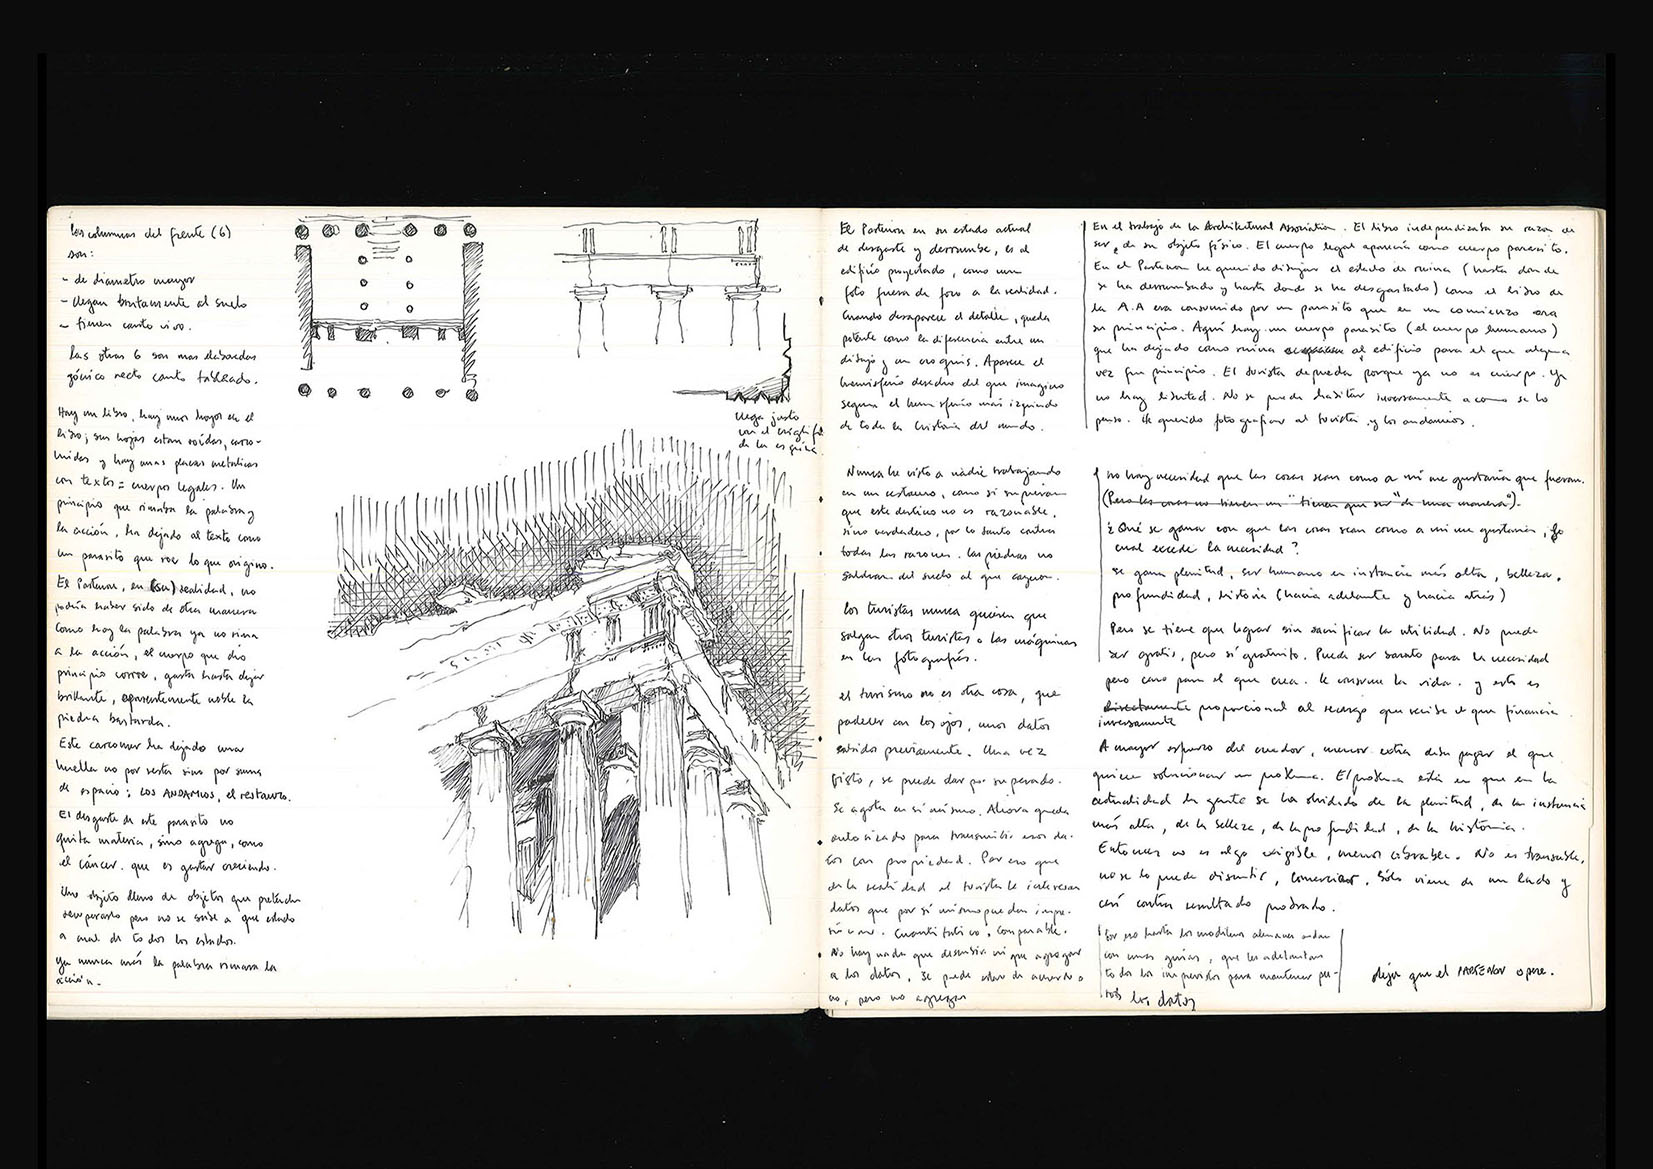 Las columnas del frente (6)
son:
- de diametro mayor
- llegan brutamente al suelo
- tienen canto vivo.
Las otras 6 son mas elaboradas
recto canto
llega justo
con el
de la esquina
Hay un libro, hay unas hojas en el
libro; sus hojas estan roídas, carco-
midas y hay unas placas metalicas
con textos = cuerpos legales. Un
principio que rimaba la palabra y
la acción, ha dejado al texto como
un parasito que roe lo que origino.
El Partenon, en (su) realidad, no
podria haber sido de otra manera
como hoy la palabra ya no rima
a la acción, el cuerpo que dio
principio corroe, gasta hasta dejar
brillante, aparentemente noble la
piedra bastarda.
Este carcomer ha dejado una
huella no por resta sino por suma
de espacio: LOS ANDAMIOS, el restauro.
El desgaste de este parasito no
quita materia, sino agrega, como
el cáncer. que es gastar creciendo.
Un objeto lleno de objetos que pretenden
recuperarlo pero no se sabe a que estado
a cual de todos los estados.
ya nunca más la palabra rimara la
acción.
El Partenon en su estado actual
de desgaste y derrumbe, es al
edificio proyectado, como una
foto fuera de foco a la realidad.
Cuando desaparece el detalle, queda
potente como la diferencia entre un
dibujo y un croquis. Aparece el
hemisferio derecho del que imagino
segun el hemisferio más izquierdo
de toda la historia del mundo.
Nunca he visto a nadie trabajando
en un restauro, como si supieran
que este destino no es razonable,
sino verdadero, por lo tanto contra
todas las razones. las piedras no
saldran del suelo al que cayeron.
los turistas nunca quieren que
salgan otros turistas o las máquinas
en las fotografías.
el turismo no es otra cosa, que
padecer con los ojos, unos datos
sabidos previamente. Una vez
visto, se puede dar por superado.
Se agota en si mismo. Ahora queda
autorizado para transmitir esos da-
tos con propiedad. Por eso que
de la realidad al turista le interesan
datos que por sí mismo puedan impre-
sionar. Cuantitativo. Comparable.
No hay nada que descubrir ni que agregar
a los datos. Se puede estar de acuerdo o
no, pero no agregar
En el trabajo de la Architectural Association. El libro independizaba su razon de
ser, de su objeto físico. El cuerpo legal aparecia como cuerpo parasito.
En el Partenon he querido dibujar el estado de ruina (hasta donde
se ha derrumbado y hasta donde se ha desgastado) como el libro de
la A.A era consumido por un parasito que en un comienzo era
su principio. Aquí hay un cuerpo parasito (el cuerpo humano)
que ha dejado como ruina al edificio para el que alguna
vez fue principio. El turista depreda porque ya no es cuerpo. Ya
no hay libertad. No se puede habitar inversamente a como se lo
penso. He querido fotografiar al turista y los andamios.
no hay necesidad que las cosas sean como a mi me gustaria que fueran.
(Pero las cosas no tienen un "tienen que ser" de una manera).
¿Qué se gana con que las cosas sean como a mi me gustaria, lo
cual excede la necesidad?
se gana plenitud, ser humano en instancia más alta, belleza,
profundidad, historia (hacia adelante y hacia atrás)
Pero se tiene que lograr sin sacrificar la utilidad. No puede
ser gratis, pero sí gratuito. Puede ser barato para la necesidad
pero caro para el que crea. le consume la vida. y esto es
directamente proporcional al recargo que recibe el que financia.
inversamente
A mayor esfuerzo del creador, menor extra debe pagar el que
quiere solucionar un problema. El problema está en que en la
actualidad la gente se ha olvidado de la plenitud, de la instancia
más alta, de la belleza, de la profundidad, de la historia.
Entonces no es algo exigible, menos cobrable. No es transable,
no se lo puede discutir, comerciar. Sólo viene de un lado y
casi contra resultado probado.
Por eso hasta los modelos alemanes andan
con unas guias, que les adelantan
todos los imprevistos para mantener pu-
ros los datos
dejar que el PARTENON opere.